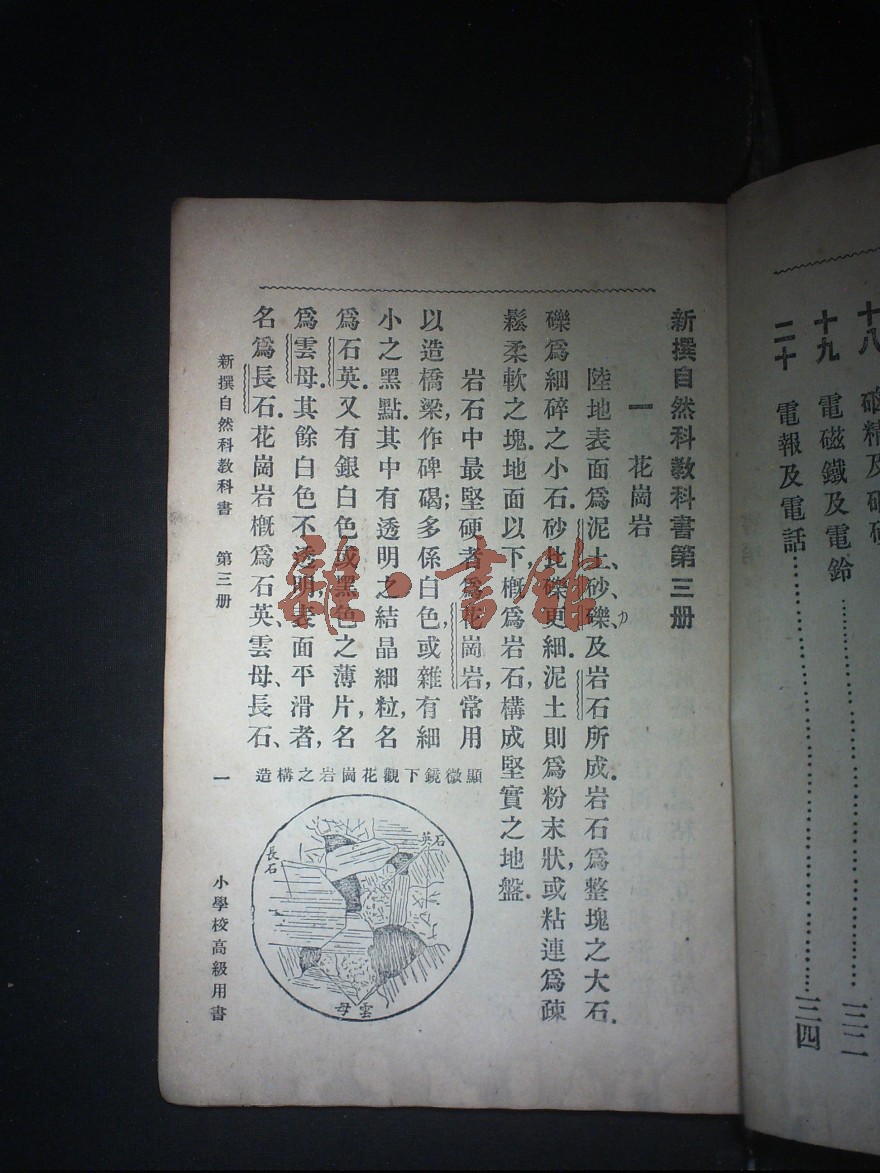 十八
十九　電磁鐵及電鈴……三二
二十　電報及電話……三四
新撰自然科教科書第三册
一　花崗岩
陸地表面爲泥土、砂、礫、及岩石所成．岩石爲整塊之大石．
礫爲細碎之小石．砂比礫更細．泥土則爲粉末狀，或粘連爲疎
鬆柔軟之塊．地面以下，槪爲岩石，構成堅實之地盤．
岩石中最堅硬者爲花崗岩，常用
以造橋梁，作碑碣；多係白色，或雜有細
小之黑點．其中有透明之結晶細粒，名
爲石英．又有銀白色或黑色之薄片，名
爲雲母．其餘白色不透明，表面平滑者，
名爲長石．花崗岩槪爲石英、雲母、長石、
顯微鏡下觀花崗岩之構造
石英
長石
雲母
新撰自然科教科書　第三册　一　小學校高級用書
雜·書館